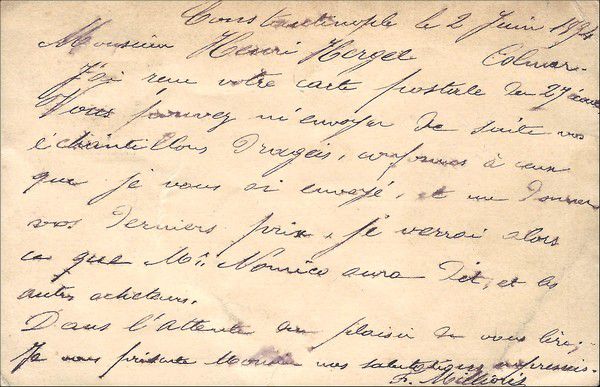 Constantinople le 2 Juin 1894
Monsieur Henri Herget Colmar.
J'ai reçu votre carte postale du 27 écoulé
Vous pouvez m'envoyer de suite vos
échantillons Dragéis, conformes à ceux
que je vous ai envoyé, et me donner
vos derniers prix, je verrai alors
ce que Mr. Nomico aura dit, et les
autres acheteurs.
Dans l'attente du plaisir de vous lire;
Je vous présente Monsieur mes salutations empressés.
F. Milliotis